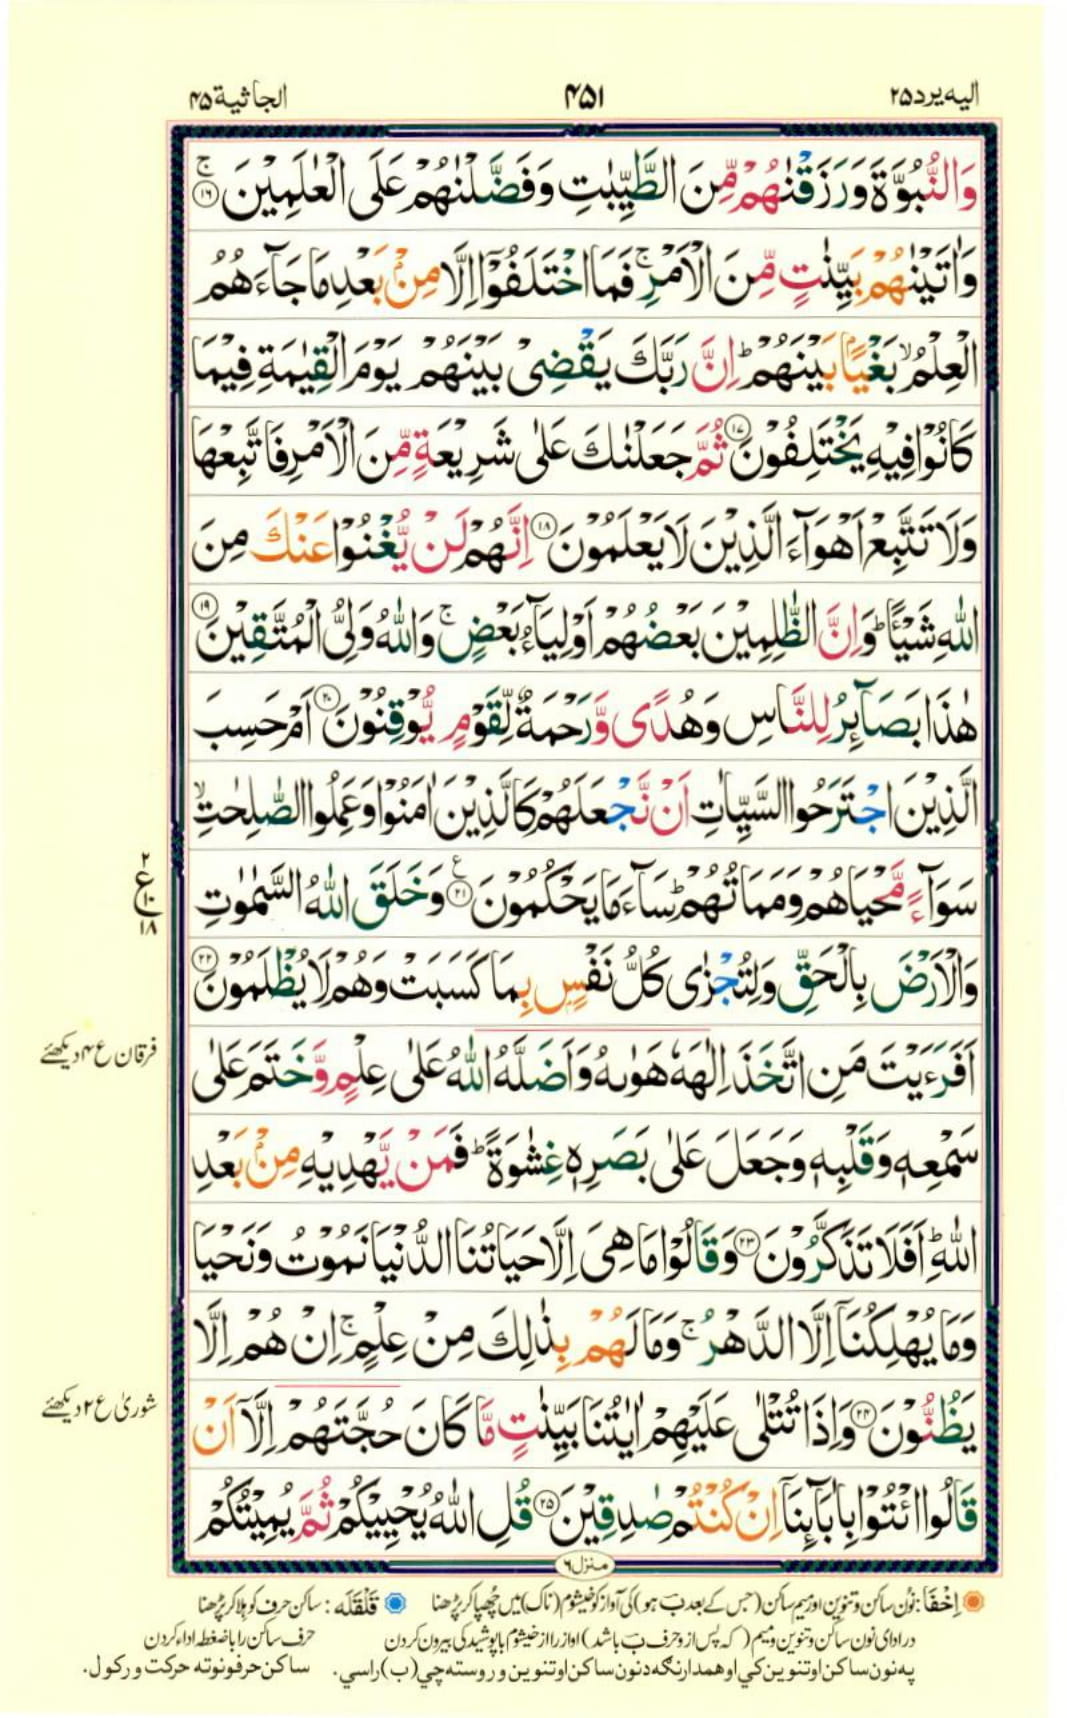 الیه یرد ۲۵
۴۵۱
الجاثیة ۴۵
وَالنُّبُوَّةَ وَرَزَقْنٰهُمْ مِّنَ الطَّيِّبٰتِ وَفَضَّلْنٰهُمْ عَلَى الْعٰلَمِيْنَ ۚ‏﴿۱۶﴾
وَاٰتَيْنٰهُمْ بَيِّنٰتٍ مِّنَ الْاَمْرِ ۚ فَمَا اخْتَلَفُوْۤا اِلَّا مِنْۢ بَعْدِ مَا جَآءَهُمُ
الْعِلْمُ ۙ بَغْيًۢا بَيْنَهُمْ ؕ اِنَّ رَبَّكَ يَقْضِىْ بَيْنَهُمْ يَوْمَ الْقِيٰمَةِ فِيْمَا
كَانُوْا فِيْهِ يَخْتَلِفُوْنَ ﴿۱۷﴾ ثُمَّ جَعَلْنٰكَ عَلٰى شَرِيْعَةٍ مِّنَ الْاَمْرِ فَاتَّبِعْهَا
وَلَا تَتَّبِعْ اَهْوَآءَ الَّذِيْنَ لَا يَعْلَمُوْنَ ﴿۱۸﴾ اِنَّهُمْ لَنْ يُّغْنُوْا عَنْكَ مِنَ
اللّٰهِ شَيْـًٔا ؕ وَاِنَّ الظّٰلِمِيْنَ بَعْضُهُمْ اَوْلِيَآءُ بَعْضٍ ۚ وَاللّٰهُ وَلِىُّ الْمُتَّقِيْنَ ﴿۱۹﴾
هٰذَا بَصَآئِرُ لِلنَّاسِ وَهُدًى وَّرَحْمَةٌ لِّقَوْمٍ يُّوْقِنُوْنَ ﴿۲۰﴾ اَمْ حَسِبَ
الَّذِيْنَ اجْتَرَحُوا السَّيِّاٰتِ اَنْ نَّجْعَلَهُمْ كَالَّذِيْنَ اٰمَنُوْا وَعَمِلُوا الصّٰلِحٰتِ ۙ
سَوَآءً مَّحْيَاهُمْ وَمَمَاتُهُمْ ؕ سَآءَ مَا يَحْكُمُوْنَ ﴿۲۱﴾ وَخَلَقَ اللّٰهُ السَّمٰوٰتِ
۲
ع
۱۰
۱۸
وَالْاَرْضَ بِالْحَقِّ وَلِتُجْزٰى كُلُّ نَفْسٍۢ بِمَا كَسَبَتْ وَهُمْ لَا يُظْلَمُوْنَ ﴿۲۲﴾
اَفَرَءَيْتَ مَنِ اتَّخَذَ اِلٰهَهٗ هَوٰىهُ وَاَضَلَّهُ اللّٰهُ عَلٰى عِلْمٍ وَّخَتَمَ عَلٰى
فرقان ع ۴ دیکھئے
سَمْعِهٖ وَقَلْبِهٖ وَجَعَلَ عَلٰى بَصَرِهٖ غِشٰوَةً ؕ فَمَنْ يَّهْدِيْهِ مِنْۢ بَعْدِ
اللّٰهِ ؕ اَفَلَا تَذَكَّرُوْنَ ﴿۲۳﴾ وَقَالُوْا مَا هِىَ اِلَّا حَيَاتُنَا الدُّنْيَا نَمُوْتُ وَنَحْيَا
وَمَا يُهْلِكُنَاۤ اِلَّا الدَّهْرُ ۚ وَمَا لَهُمْ بِذٰلِكَ مِنْ عِلْمٍ ۚ اِنْ هُمْ اِلَّا
يَظُنُّوْنَ ﴿۲۴﴾ وَاِذَا تُتْلٰى عَلَيْهِمْ اٰيٰتُنَا بَيِّنٰتٍ مَّا كَانَ حُجَّتَهُمْ اِلَّاۤ اَنْ
شوریٰ ع ۲ دیکھئے
قَالُوا ائْتُوْا بِاٰبَآئِنَاۤ اِنْ كُنْتُمْ صٰدِقِيْنَ ﴿۲۵﴾ قُلِ اللّٰهُ يُحْيِيْكُمْ ثُمَّ يُمِيْتُكُمْ
منزل ۶
اِخْفَا: نون ساکن و تنوین اور میم ساکن (جس کے بعد ب ہو) کی آواز کو خیشوم (ناک) میں چھپا کر پڑھنا
قَلْقَلَه: ساکن حرف کو ہلا کر پڑھنا
در ادای نون ساکن و تنوین و میم (که پس از و حرف ب باشد) اواز را از خیشوم با پوشیدگی بیرون کردن
حرف ساکن را با ضغطه اداء کردن
په نون ساکن او تنوین کي او همدارنگه د نون ساکن او تنوین و روسته چي (ب) راسي.
ساکن حرفونو ته حرکت ورکول.